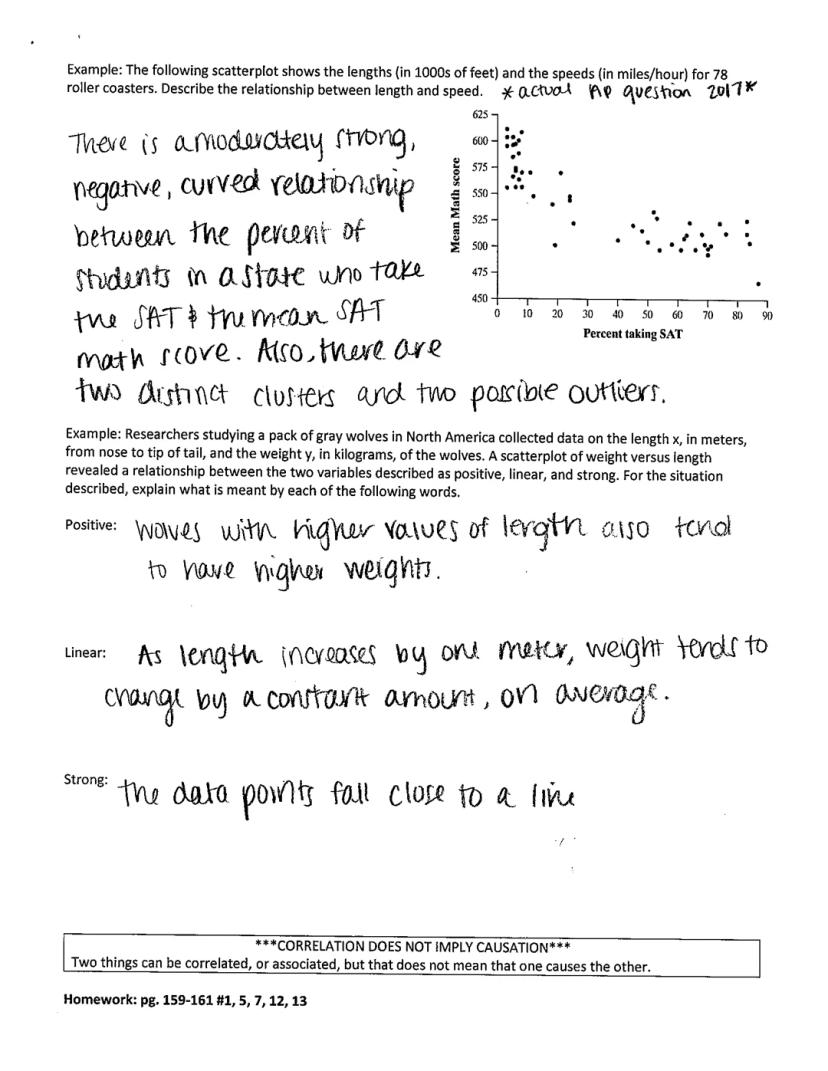 Example: The following scatterplot shows the lengths (in 1000s of feet) and the speeds (in miles/hour) for 78
roller coasters. Describe the relationship between length and speed. * actual AP question 2017*
There is a moderately strong,
negative, curved relationship
between the percent of
students in a state who take
the SAT & the mean SAT
math score. Also, there are
two distinct clusters and two possible outliers.
Mean Math score
625
600
575
550
525
500
475
450
0 10 20 30 40 50 60 70 80 90
Percent taking SAT
Example: Researchers studying a pack of gray wolves in North America collected data on the length x, in meters,
from nose to tip of tail, and the weight y, in kilograms, of the wolves. A scatterplot of weight versus length
revealed a relationship between the two variables described as positive, linear, and strong. For the situation
described, explain what is meant by each of the following words.
Positive: Wolves with higher values of length also tend
to have higher weights.
Linear: As length increases by one meter, weight tends to
change by a constant amount, on average.
Strong: The data points fall close to a line
***CORRELATION DOES NOT IMPLY CAUSATION***
Two things can be correlated, or associated, but that does not mean that one causes the other.
Homework: pg. 159-161 #1, 5, 7, 12, 13